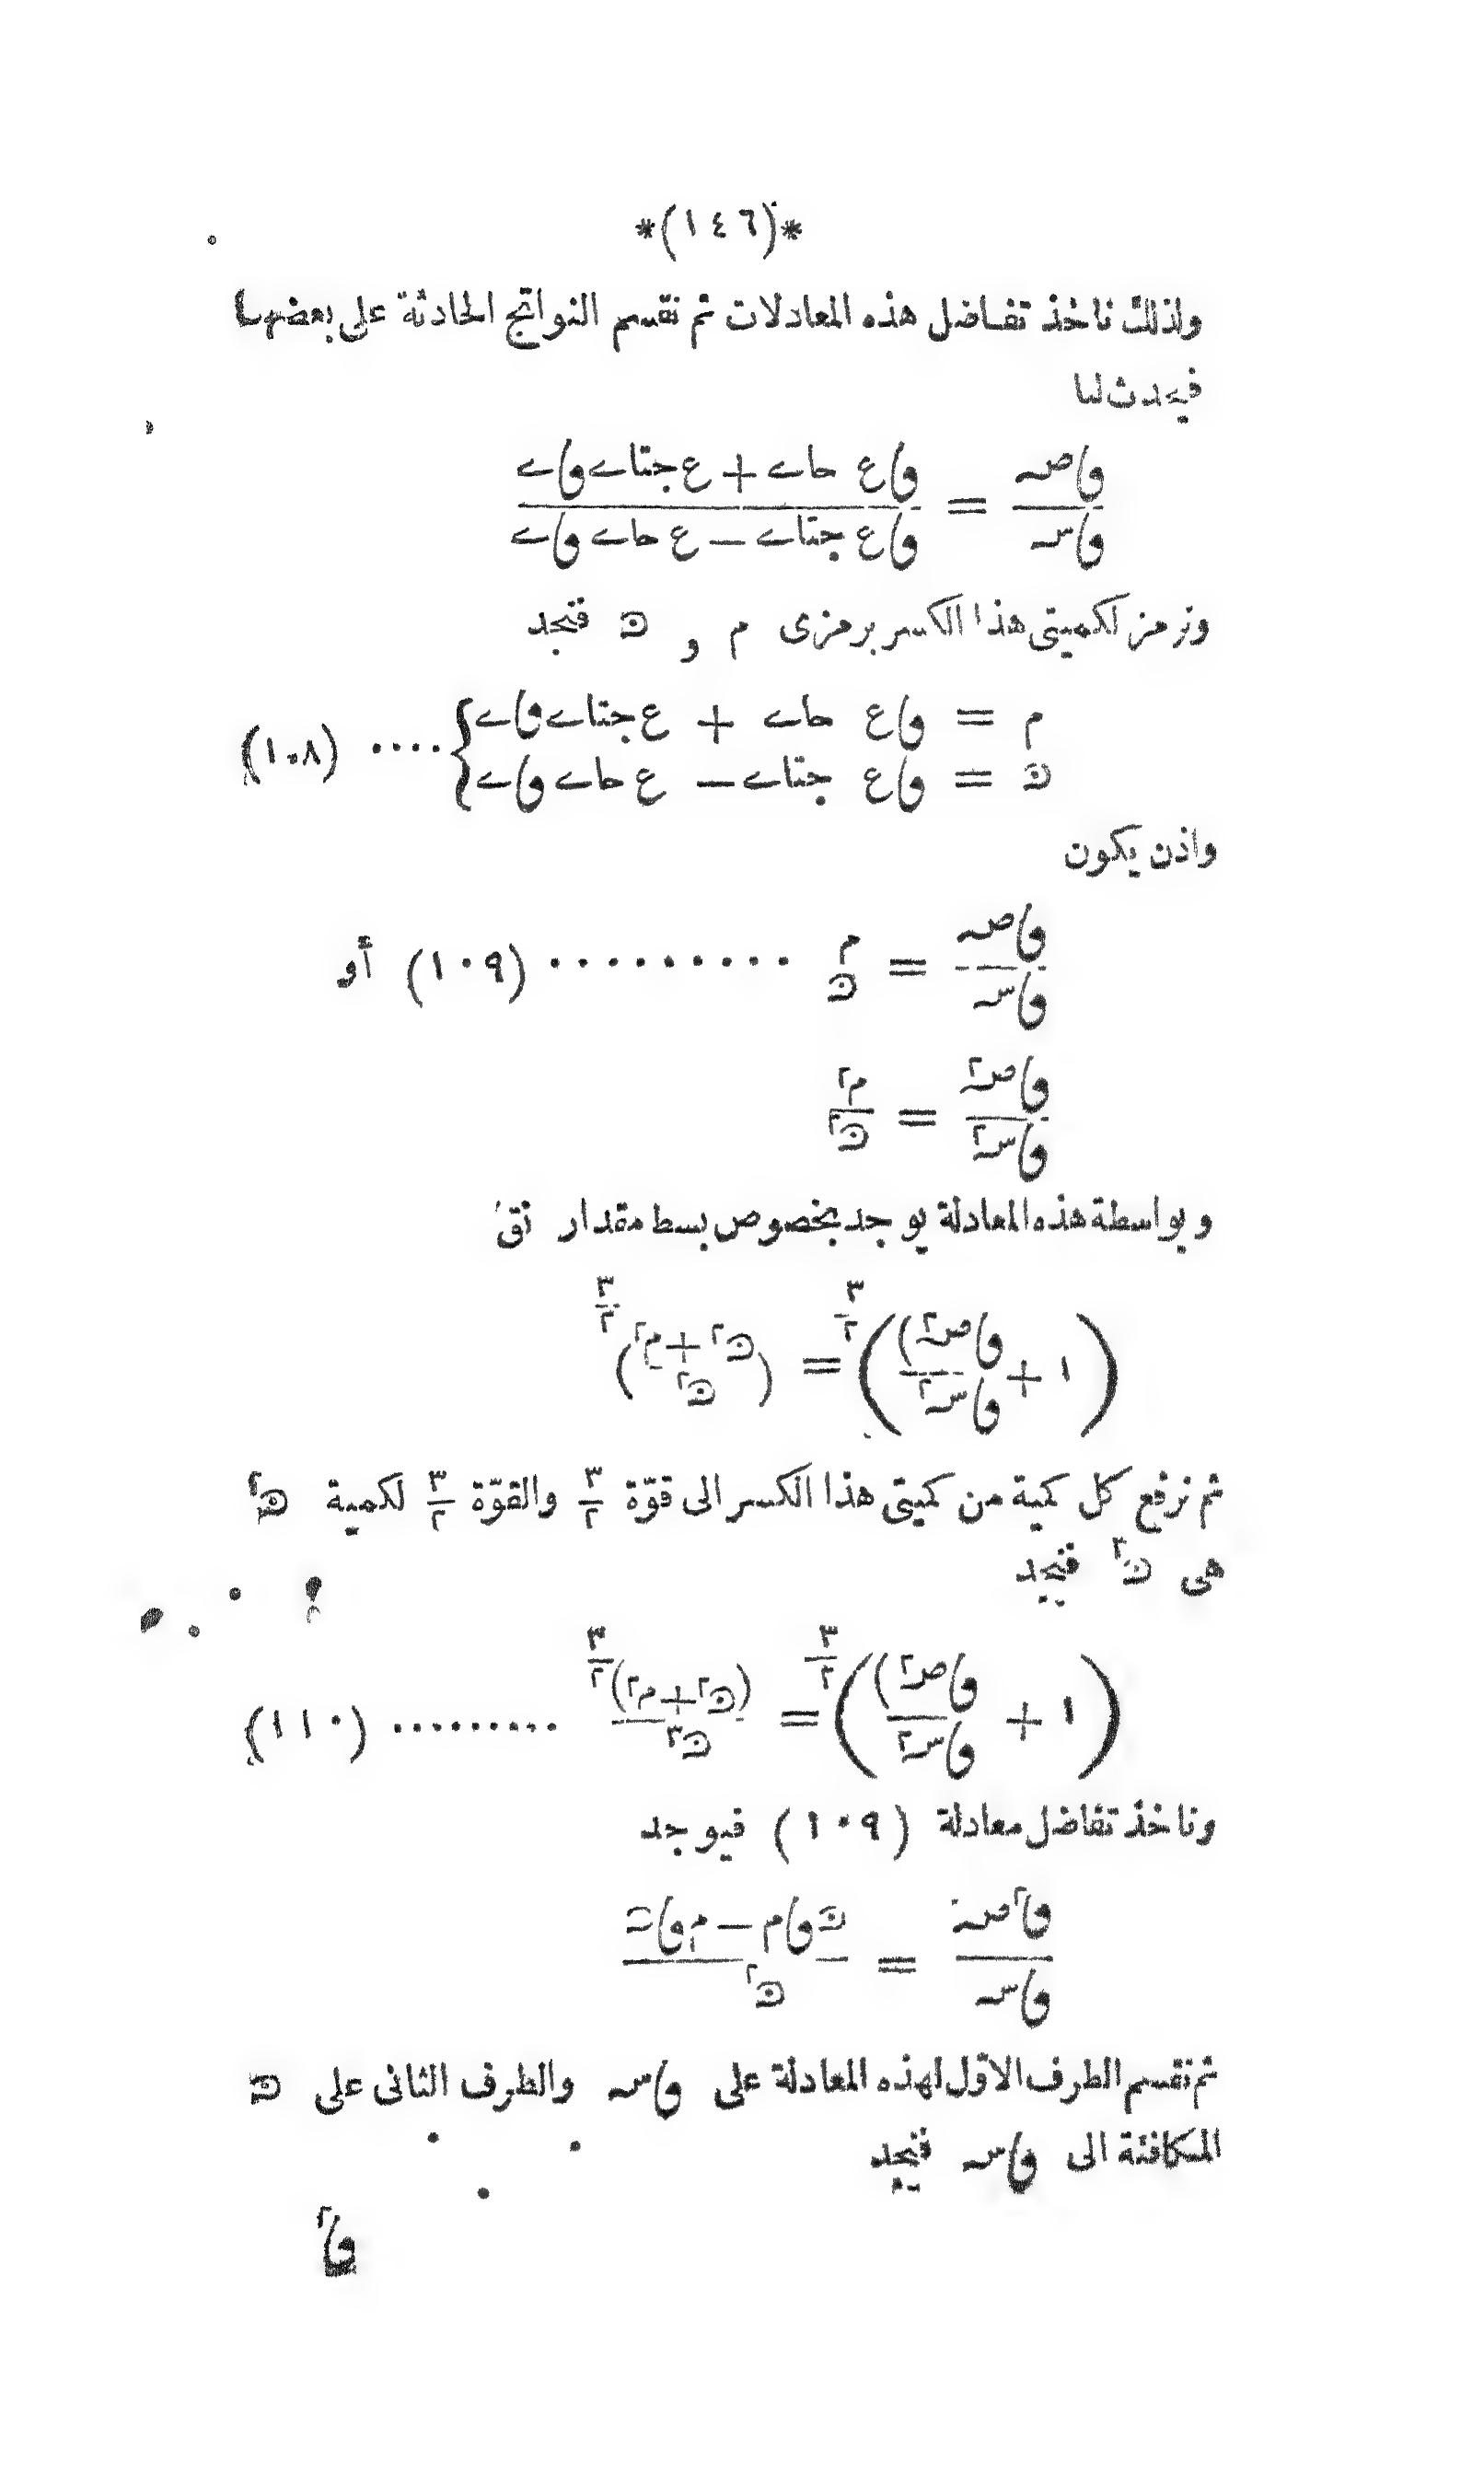 *(١٤٦)*
ولذلك ناخذ تفاضل هذه المعادلات ثم نقسم النواتج الحادثة على بعضها
فيحدث لنا
وٯاصہ / وٯاسہ = وٯاع حاے + ع جتاے وٯاے / وٯاع جتاے – ع حاے وٯاے
ونرمز لكميتى هذا الكسر برمزى م و ں فنجد
م = وٯاع حاے + ع جتاے وٯاے
ں = وٯاع جتاے – ع حاے وٯاے } .... (١٠٨)
واذن يكون
وٯاصہ / وٯاسہ = م / ں ......... (١٠٩) أو
وٯاصہ٢ / وٯاسہ٢ = م٢ / ں٢
وبواسطة هذه المعادلة يوجد بخصوص بسط مقدار نق
(١ + وٯاصہ٢ / وٯاسہ٢)٣/٢ = (ں٢ + م٢ / ں٢)٣/٢
ثم نرفع كل كمية من كميتى هذا الكسر الى قوّة ٣/٢ والقوّة ٣/٢ لكمية ں٢
هى ں٣ فنجد
(١ + وٯاصہ٢ / وٯاسہ٢)٣/٢ = (ں٢ + م٢)٣/٢ / ں٣ ......... (١١٠)
وناخذ تفاضل معادلة (١٠٩) فيوجد
وٯا٢صہ / وٯاسہ = ں وٯام – م وٯاں / ں٢
ثم نقسم الطرف الاوّل لهذه المعادلة على وٯاسہ والطرف الثانى على ں
المكافئة الى وٯاسہ فنجد
وٯا٢